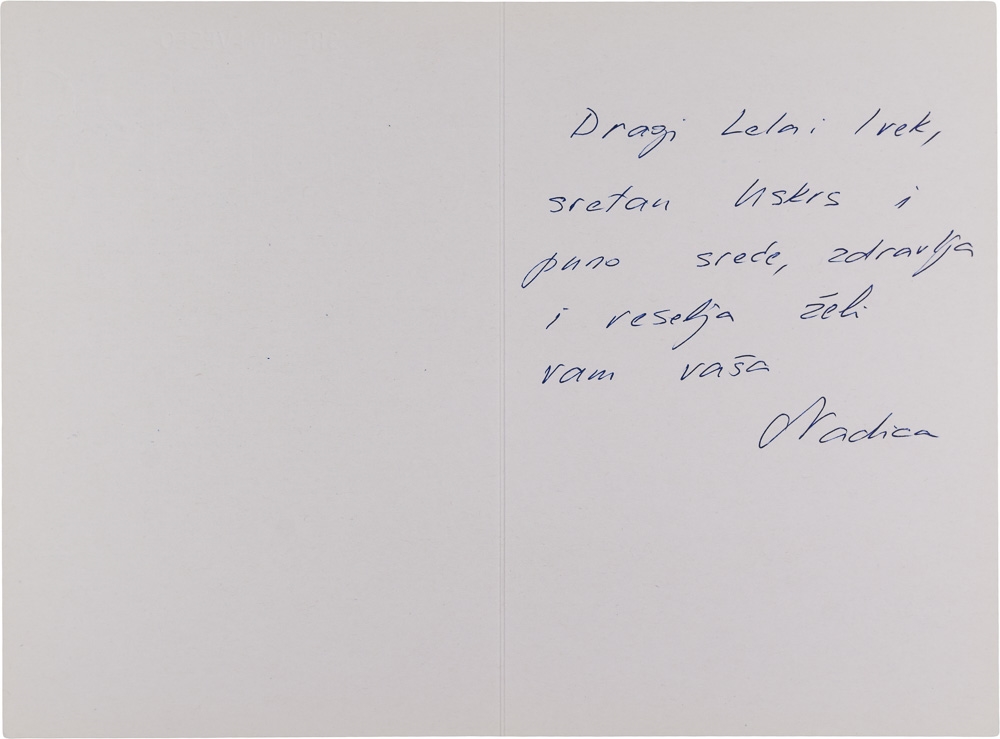 Dragi Lela i Ivek,
sretan Uskrs i
puno sreće, zdravlja
i veselja želi
vam vaša
Nadica